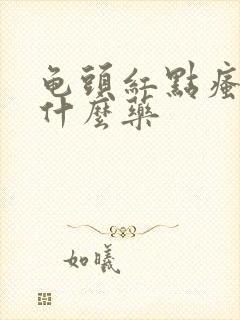 龟頭紅點瘙
什麼藥
如曦